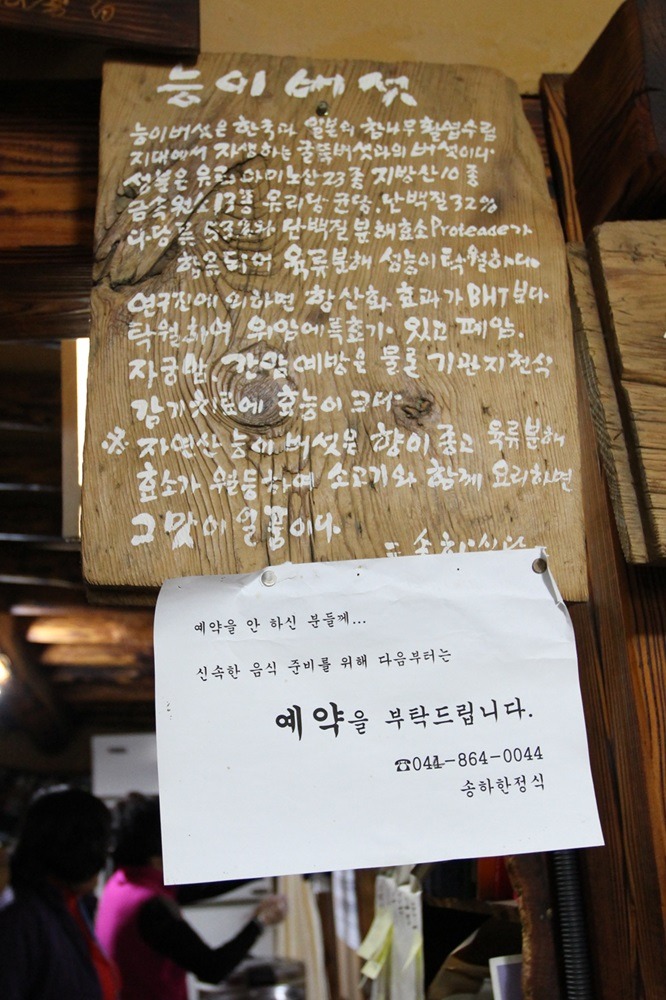 능이버섯
능이버섯은 한국과 일본의 참나무 활엽수림
지대에서 자생하는 굴뚝버섯과의 버섯이다.
성분은 유리 아미노산 23종 지방산 10종
금속원소 13종 유리당 균당, 단백질 32%
다당류 53%와 단백질 분해효소 Protease가
함유되어 육류분해 성능이 탁월하다
연구진에 의하면 항산화 효과가 BHT보다
탁월하여 위암에 특효가 있고 폐암,
자궁암, 간암예방은 물론 기관지천식
감기치료에 효능이 크다.
※ 자연산 능이버섯은 향이 좋고 육류분해
효소가 월등하여 소고기와 함께 요리하면
그맛이 일품이다.
송하식당
예약을 안 하신 분들께...
신속한 음식 준비를 위해 다음부터는
예약을 부탁드립니다.
☎044-864-0044
송하한정식